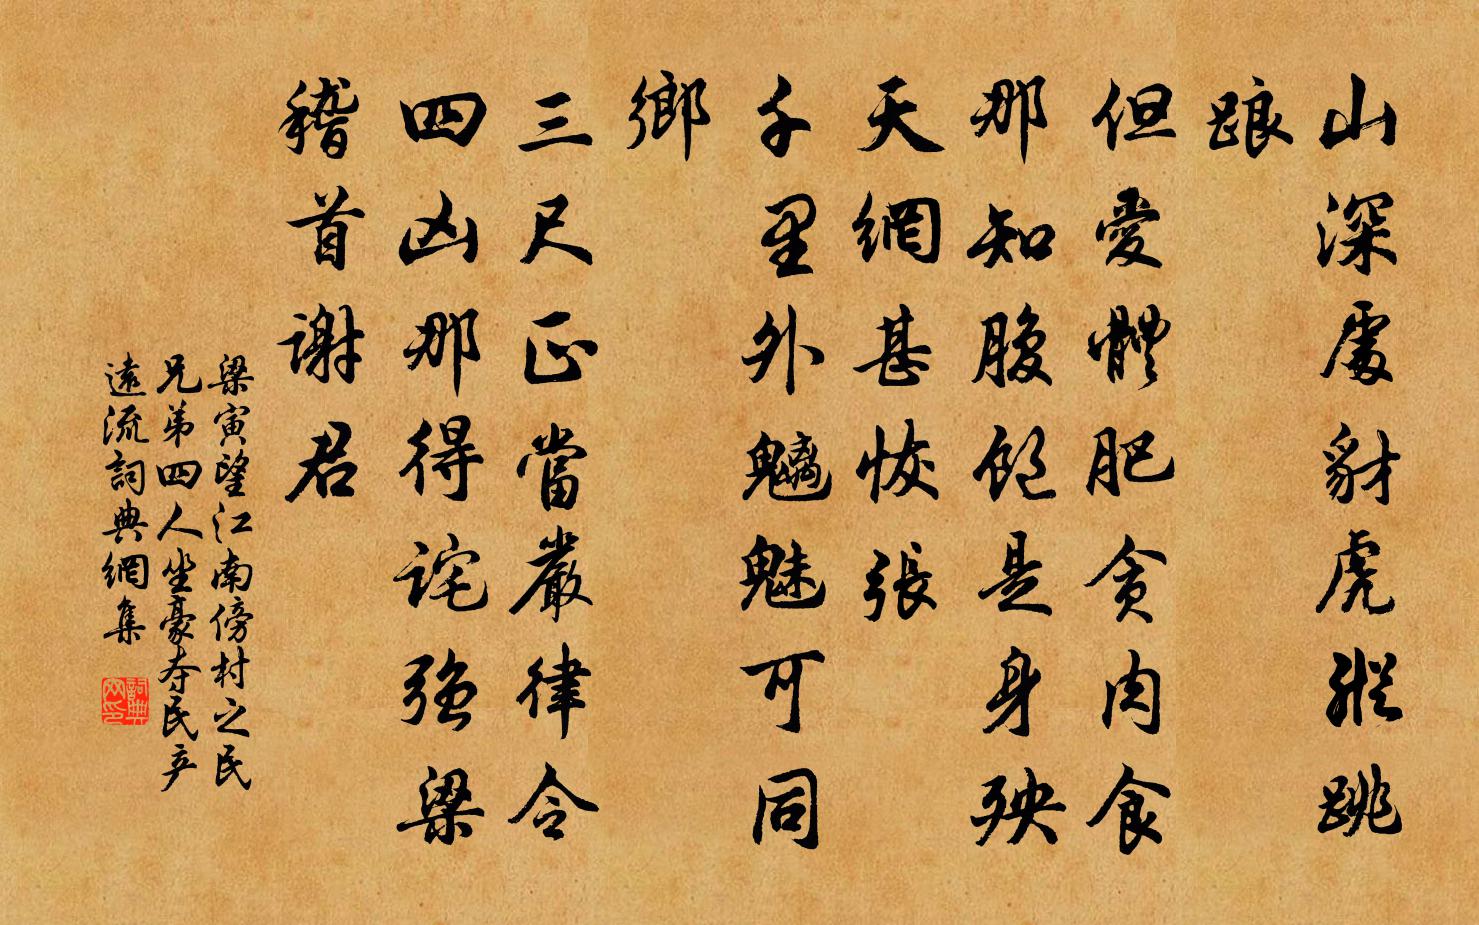 山深處豺虎縱跳
踉
但愛體肥貪肉食
那知腹飽是身殃
天網甚恢張
千里外魑魅可同
鄉
三尺正當嚴律令
四凶那得詫強梁
稽首謝君
梁寅望江南傍村之民
兄弟四人坐豪夺民产
遠流詞典網集
詞典
网印